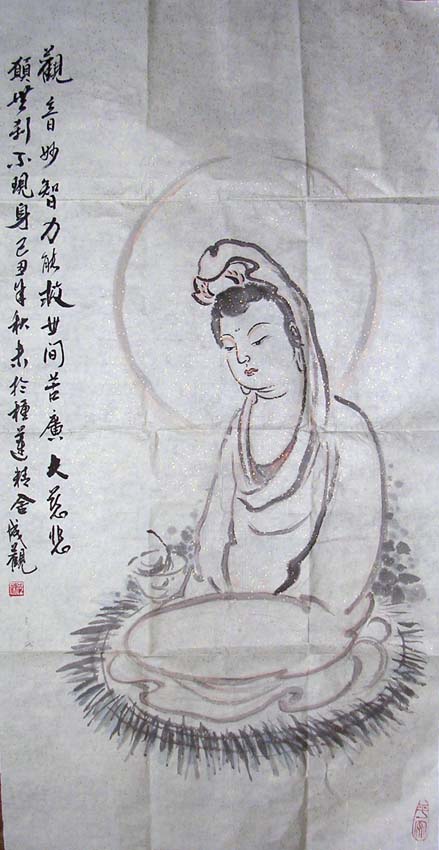 觀音妙智力能救世間苦廣大慈悲
願無刹不現身己丑年秋末於種蓮精舍成觀